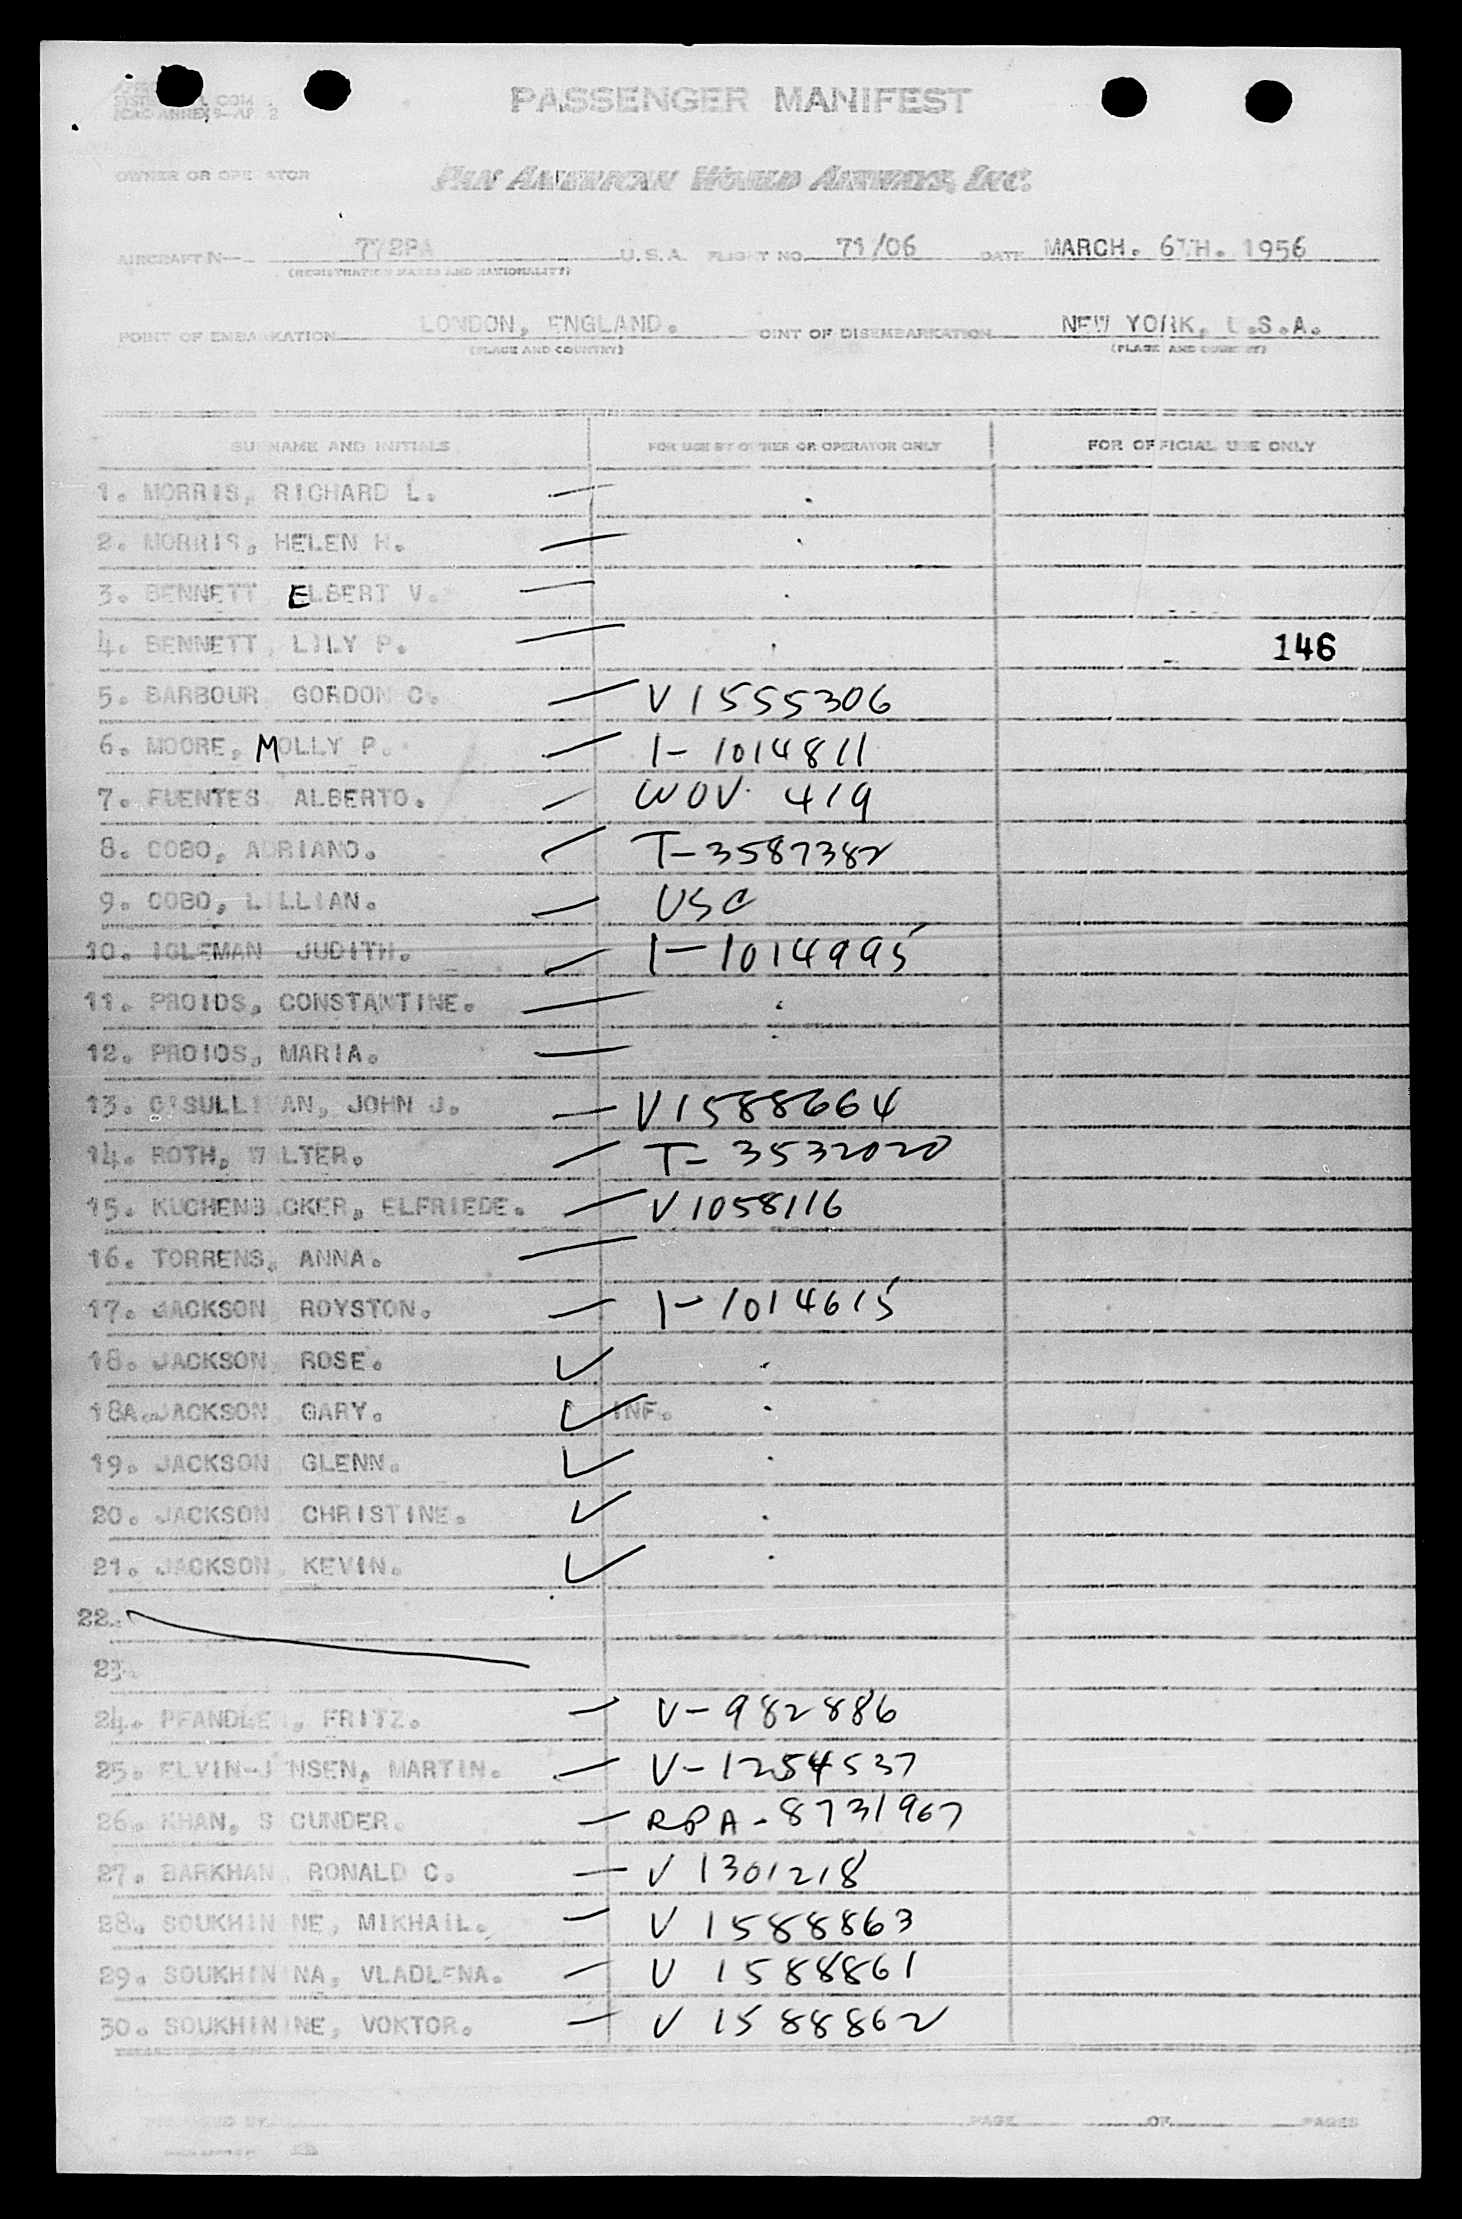 PASSENGER MANIFEST
OWNER OR OPERATOR PAN AMERICAN WORLD AIRWAYS, INC.
AIRCRAFT N— 772PA U.S.A. FLIGHT NO. 71/06 DATE MARCH. 6TH. 1956
(REGISTRATION MARKS AND NATIONALITY)
POINT OF EMBARKATION LONDON, ENGLAND. POINT OF DISEMBARKATION NEW YORK, U.S.A.
(PLACE AND COUNTRY) (PLACE AND COUNTRY)
SURNAME AND INITIALS FOR USE BY OWNER OR OPERATOR ONLY FOR OFFICIAL USE ONLY
1. MORRIS, RICHARD L. —
2. MORRIS, HELEN H. —
3. BENNETT ELBERT V. —
4. BENNETT, LILY P. — 146
5. BARBOUR, GORDON C. — V1555306
6. MOORE, MOLLY P. — 1-1014811
7. FUENTES ALBERTO. — WOV. 419
8. COBO, ADRIANO. — T-3587382
9. COBO, LILLIAN. — USC
10. IGLEMAN JUDITH. — 1-1014995
11. PROIOS, CONSTANTINE. —
12. PROIOS, MARIA. —
13. O'SULLIVAN, JOHN J. — V1588664
14. ROTH, WALTER. — T-3532020
15. KUCHENBACKER, ELFRIEDE. — V1058116
16. TORRENS, ANNA. —
17. JACKSON ROYSTON. — 1-1014615
18. JACKSON, ROSE. ✓
18A. JACKSON, GARY. ✓ INF.
19. JACKSON, GLENN. ✓
20. JACKSON CHRISTINE. ✓
21. JACKSON, KEVIN. ✓
22.
23.
24. PFANDLER, FRITZ. — V-982886
25. ELVIN-JENSEN, MARTIN. — V-1254537
26. KHAN, S CUNDER. — RPA-8731967
27. BARKHAN, RONALD C. — V 1301218
28. SOUKHININE, MIKHAIL. — V 1588863
29. SOUKHININA, VLADLENA. — V 1588861
30. SOUKHININE, VOKTOR. — V 1588862
PREPARED BY PAGE OF PAGES